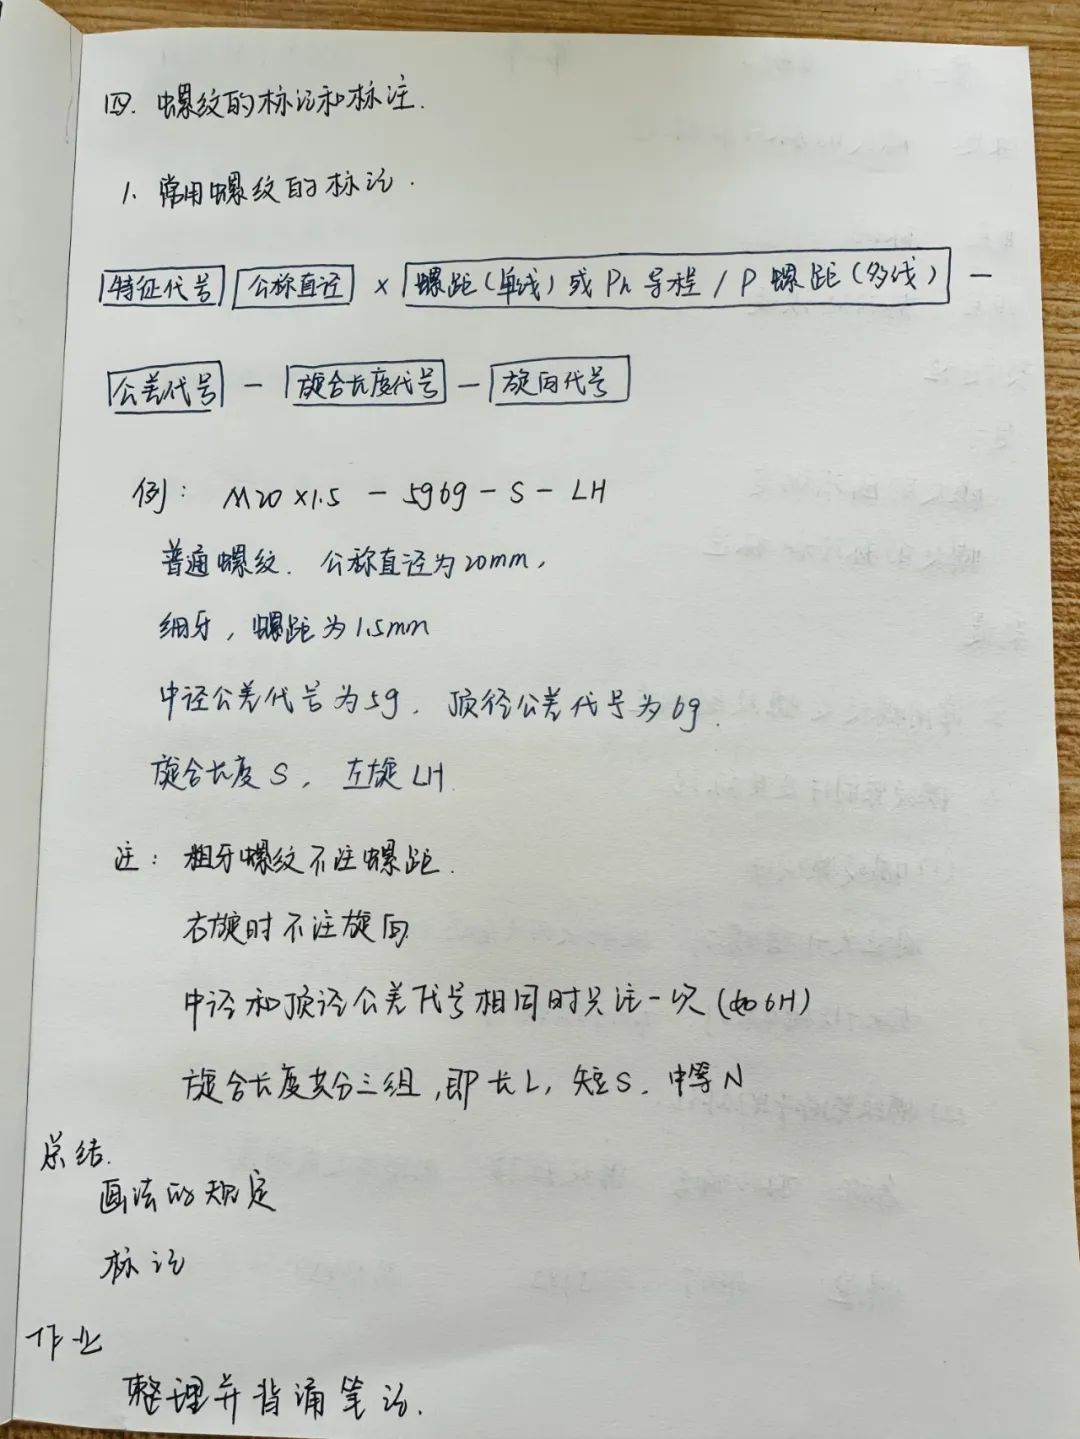 四. 螺纹的标记和标注.
1. 常用螺纹的标记.
特征代号 公称直径 × 螺距(单线)或Ph导程/P螺距(多线) —
公差代号 — 旋合长度代号 — 旋向代号
例: M20×1.5 — 5g6g — S — LH
普通螺纹. 公称直径为20mm,
细牙, 螺距为1.5mm
中径公差代号为5g. 顶径公差代号为6g.
旋合长度S, 左旋LH.
注: 粗牙螺纹不注螺距.
右旋时不注旋向
中径和顶径公差代号相同时只注一次(如6H)
旋合长度共分三组,即长L, 短S. 中等N
总结.
画法的规定
标记
作业
整理并背诵笔记.